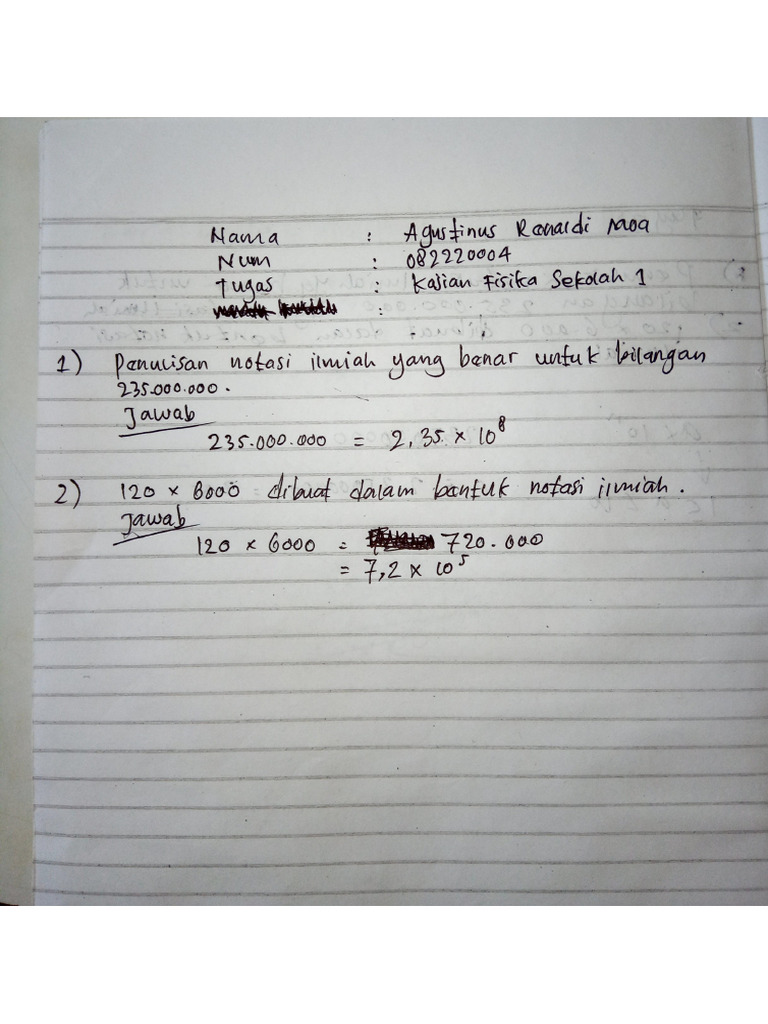 Nama : Agustinus Ronaldi Moa
Num : 082220004
Tugas : Kajian Fisika Sekolah 1
:
1) Penulisan notasi ilmiah yang benar untuk bilangan
235.000.000.
Jawab
235.000.000 = 2,35 × 10⁸
2) 120 × 6000 dibuat dalam bentuk notasi ilmiah.
Jawab
120 × 6000 = 720.000
= 7,2 × 10⁵